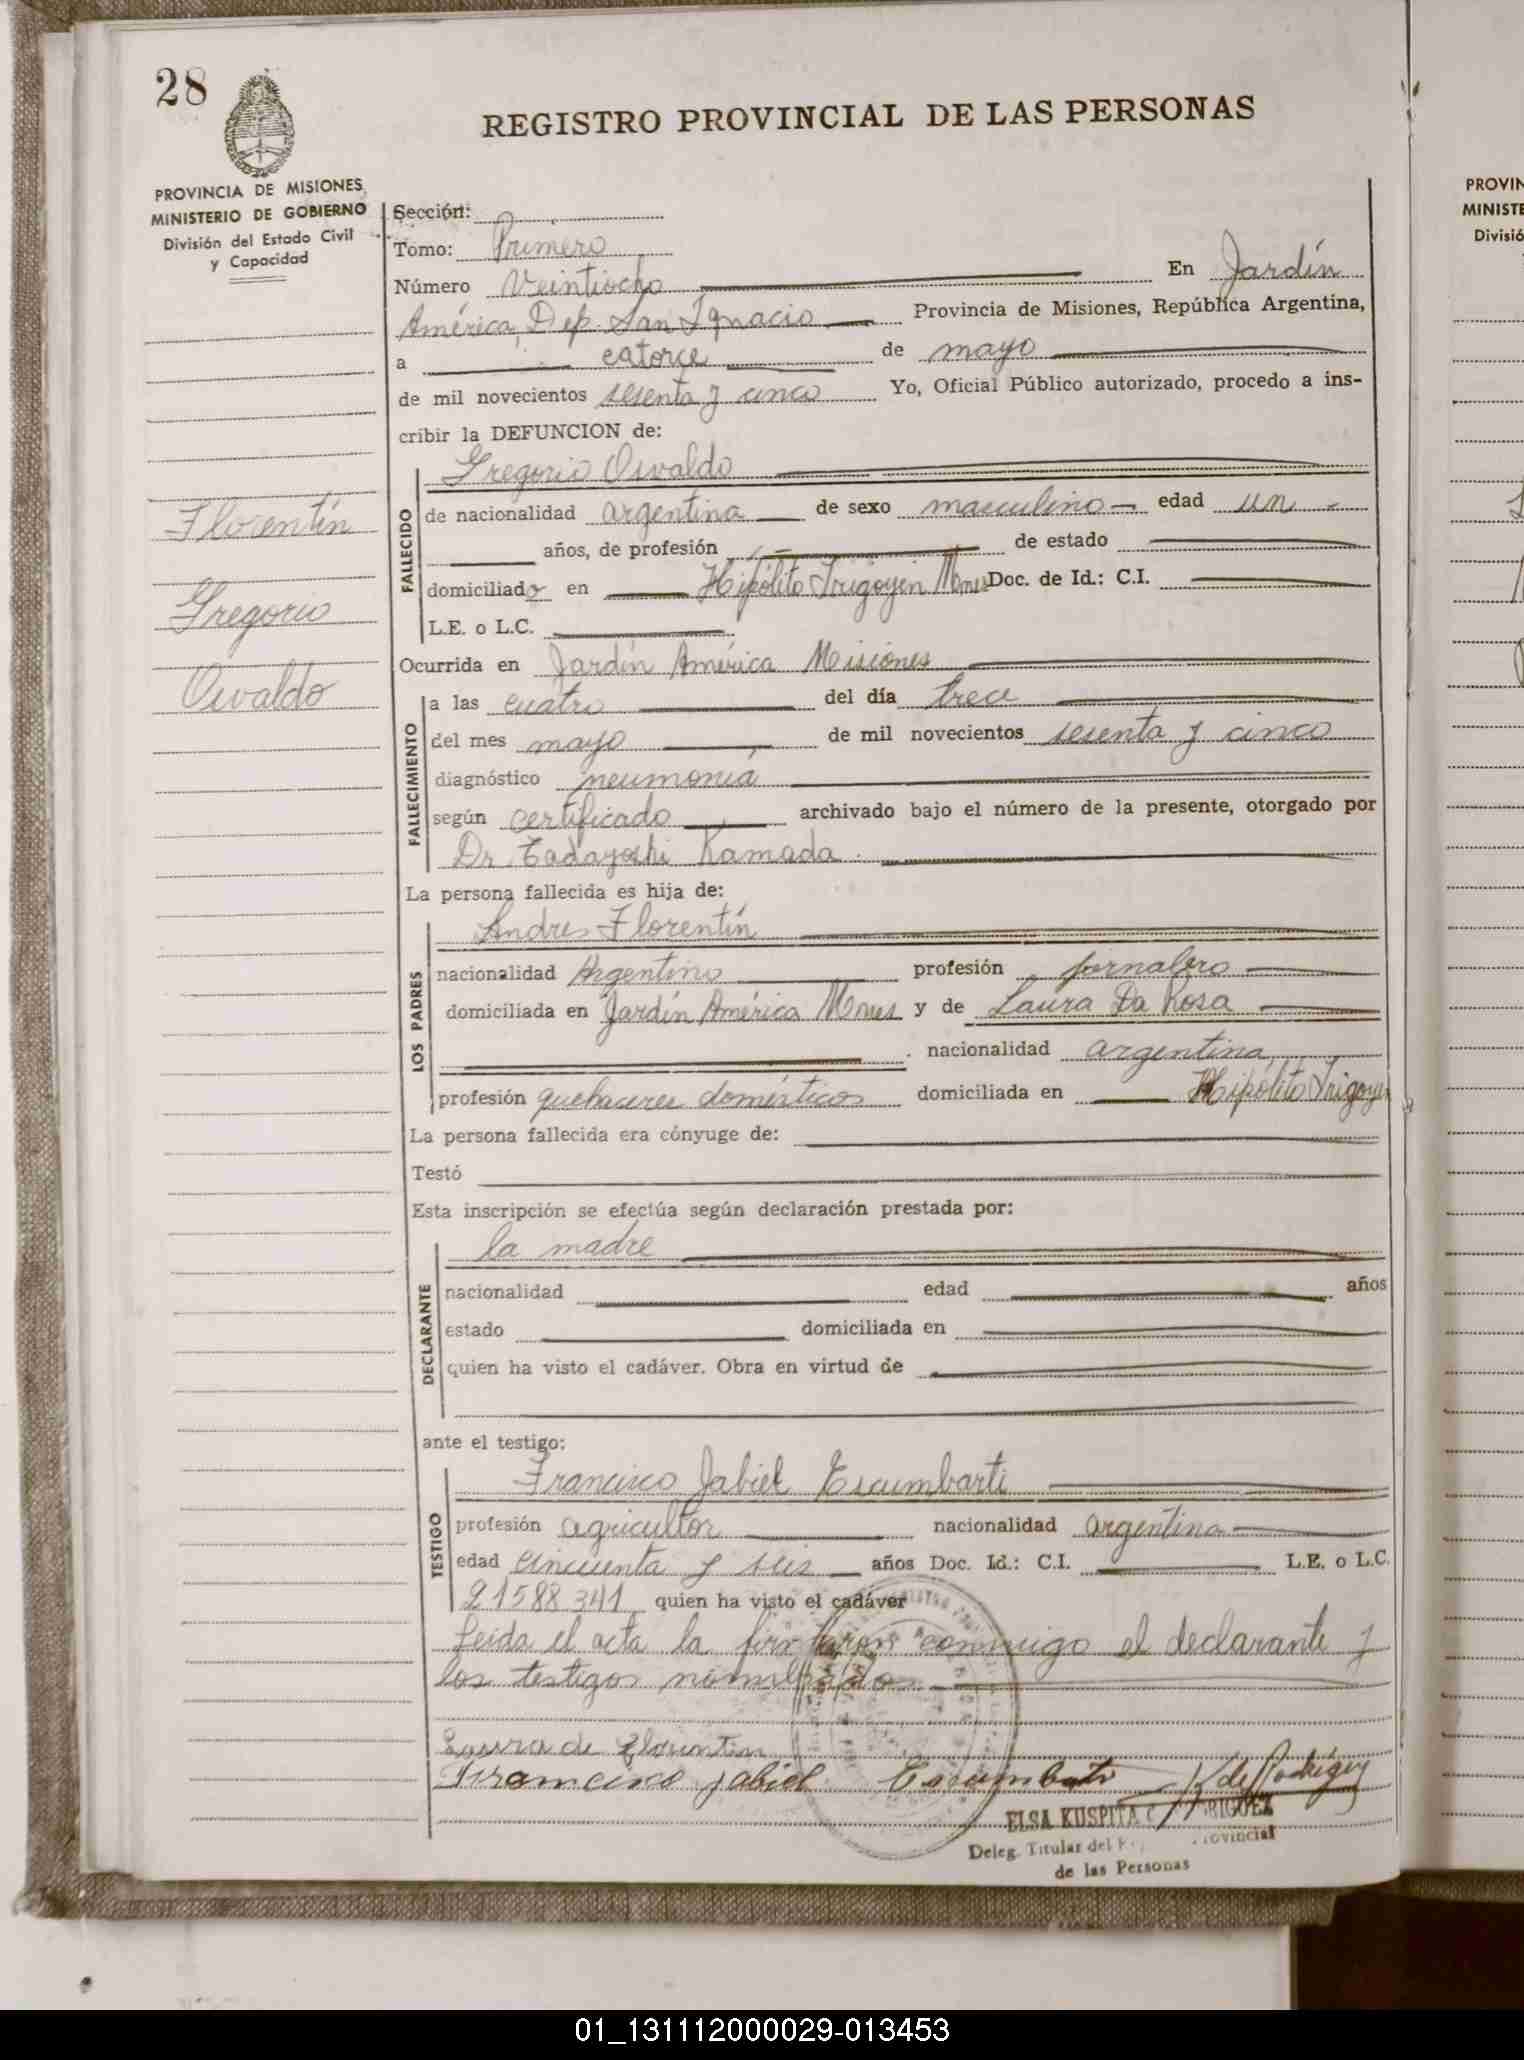 28
REGISTRO PROVINCIAL DE LAS PERSONAS
PROVINCIA DE MISIONES
MINISTERIO DE GOBIERNO
División del Estado Civil
y Capacidad
Florentín
Gregorio
Osvaldo
Sección:
Tomo: Primero
Número Veintiocho En Jardín
América, Dep. San Ignacio Provincia de Misiones, República Argentina,
a catorce de mayo
de mil novecientos sesenta y cinco Yo, Oficial Público autorizado, procedo a ins-
cribir la DEFUNCION de:
FALLECIDO
Gregorio Osvaldo
de nacionalidad argentina de sexo masculino edad un
años, de profesión de estado
domiciliado en Hipólito Irigoyin Mnes Doc. de Id.: C.I.
L.E. o L.C.
Ocurrida en Jardín América Misiones
FALLECIMIENTO
a las cuatro del día trece
del mes mayo de mil novecientos sesenta y cinco
diagnóstico neumonía
según certificado archivado bajo el número de la presente, otorgado por
Dr. Tadayoshi Kamada.
La persona fallecida es hija de:
LOS PADRES
Andres Florentín
nacionalidad Argentino profesión jornalero
domiciliada en Jardín América Mnes y de Laura Da Rosa
nacionalidad argentina
profesión quehaceres domésticos domiciliada en Hipólito Irigoyin
La persona fallecida era cónyuge de:
Testó
Esta inscripción se efectúa según declaración prestada por:
DECLARANTE
la madre
nacionalidad edad años
estado domiciliada en
quien ha visto el cadáver. Obra en virtud de
ante el testigo:
TESTIGO
Francisco Jabiel Escumbarti
profesión agricultor nacionalidad argentina
edad cincuenta y seis años Doc. Id.: C.I. L.E. o L.C.
21588341 quien ha visto el cadáver
Leida el acta la firmaron conmigo el declarante y
los testigos nombrados
Laura de Florentin
Francisco Jabiel Escumbarti K de Rodríguez
ELSA KUSPITA RODRIGUEZ
Deleg. Titular del Provincial
de las Personas
PROVIN
MINISTE
Divisió
01_131112000029-013453